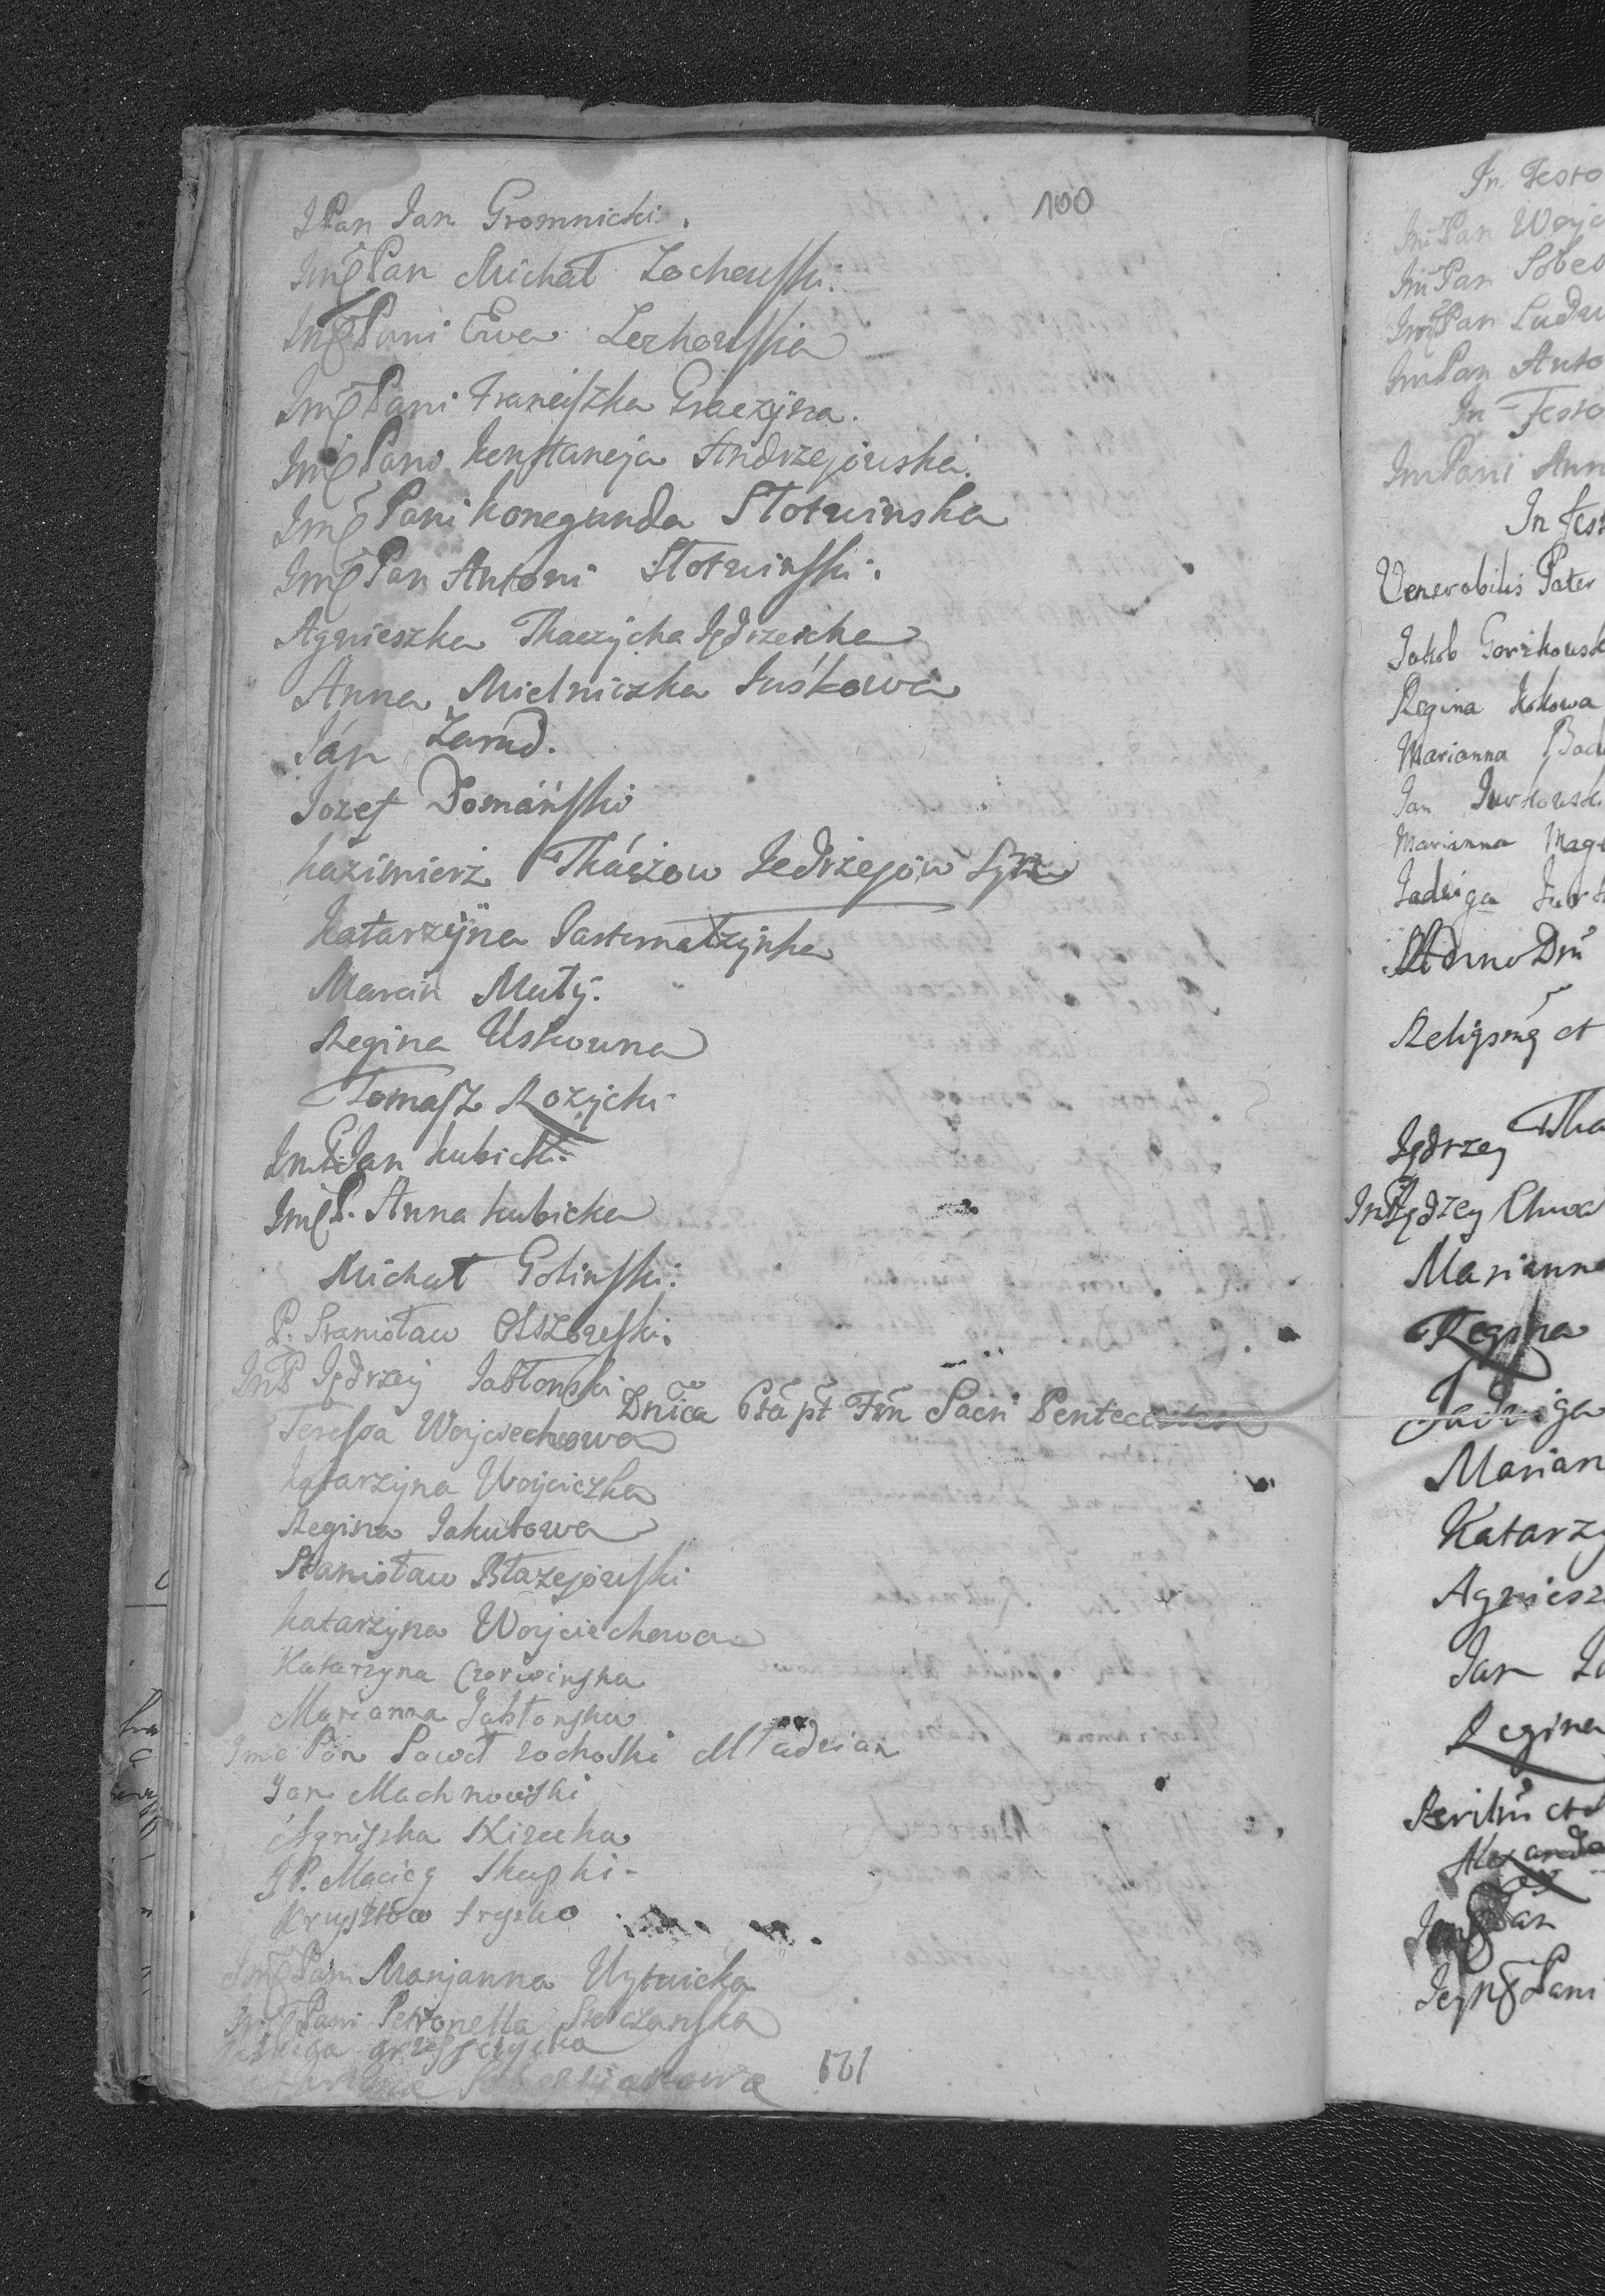 100
JPan Jan Gromnicki.
Jmć Pan Michał Zochowski.
Jmć Pani Ewa Zechowska
Jmć Pani Franciszka Graczyna.
Jmć Pani Konstancja Andrzejowska.
Jmć Pani Konegunda Słotwinska
Jmć Pan Antoni Słotwinski.
Agnieszka Tkaczycha Jędrzeicha
Anna Mielniczka Łuśkowa
Ján Zarud.
Jozef Domáński
Kazimierz Tkáczow Jedrzejów Syn
Katarzyna Pasternaczynka
Marcin Muty.
Regina Uskowna
Tomasz Rozycki
Jm P. Jan Kubicki.
Jmć P. Anna Kubicka
Michał Golinski.
P. Stanisław Olszewski.
Jm P Jędrzey Jabłonski
Dnica 6ta pt Fm Sacri Pentecostes
Teressa Woyciechowa
Katarzyna Woyciczka
Regina Jakubowa
Stanisław Błazejowski
Katarzyna Woyciechowa
Katarzyna Czerwinska
Marianna Jabłonska
Jmć Pan Paweł zochoski M
Jan Machnowski
Agniszka
J P. Maciey Skupki
Krysztow
Jmć Pani Marjanna Uytwicka
Jmć Pani Petronella
Jadwiga
121
In Festo
Jm Pan Woyc
Jm Pan Sobes
Jm Pan Ludw
Jm Pan Anto
In Festo
Jm Pani Ann
In Fest
Venerabilis Pater
Jakob Gorzkowsk
Regina Kokowa
Marianna Bad
Jan Jurkowsk
Marianna Mag
Jadwiga Jurk
Admo Dm
Religsmg et
Jędrzey Tka
Jm P Jędrzey Chwa
Marianna
Regina
Jadwiga
Marian
Katarzy
Agniesz
Jan Za
Regina
et
Jan
Pani